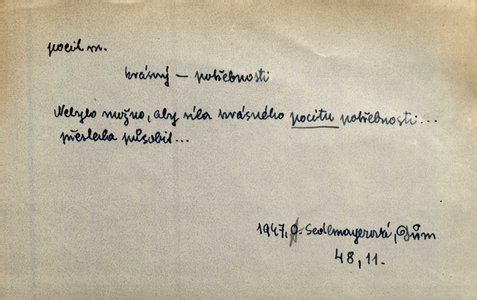 pocit m.
krásný — potřebnosti
Nebylo možno, aby síla krásného pocitu potřebnosti...
přestala působit...
1947, Sedlmayerová, Dům
48, 11.